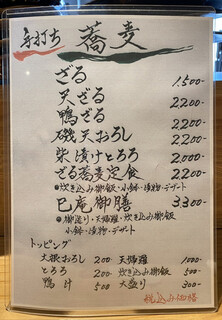 手打ち 蕎麦
ざる 1.500-
天ざる 2200-
鴨ざる 2200-
磯天おろし 2200-
柴漬けとろろ 2000-
ざる蕎麦定食 2200-
●炊き込み御飯・小鉢・漬物・デザート
巳庵御膳 3300-
●御造り・天婦羅・炊き込み御飯
小鉢・漬物・デザート
トッピング
大根おろし 200- 天婦羅 1000-
とろろ 200- 炊き込み御飯 500-
鴨汁 500 大盛り 300-
税込み価格